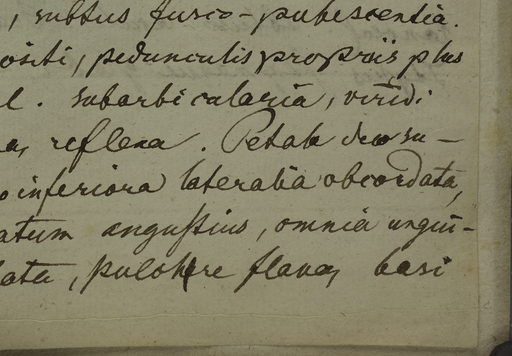 , subtus fusco-pubescentia.
ositi, pedunculis propriis plus
l. subarbicularia, viridi
a, reflexa. Petala duo su-
o inferiora lateralia obcordata,
atum angustius, omnia ungui-
lata, pulchre flava, basi